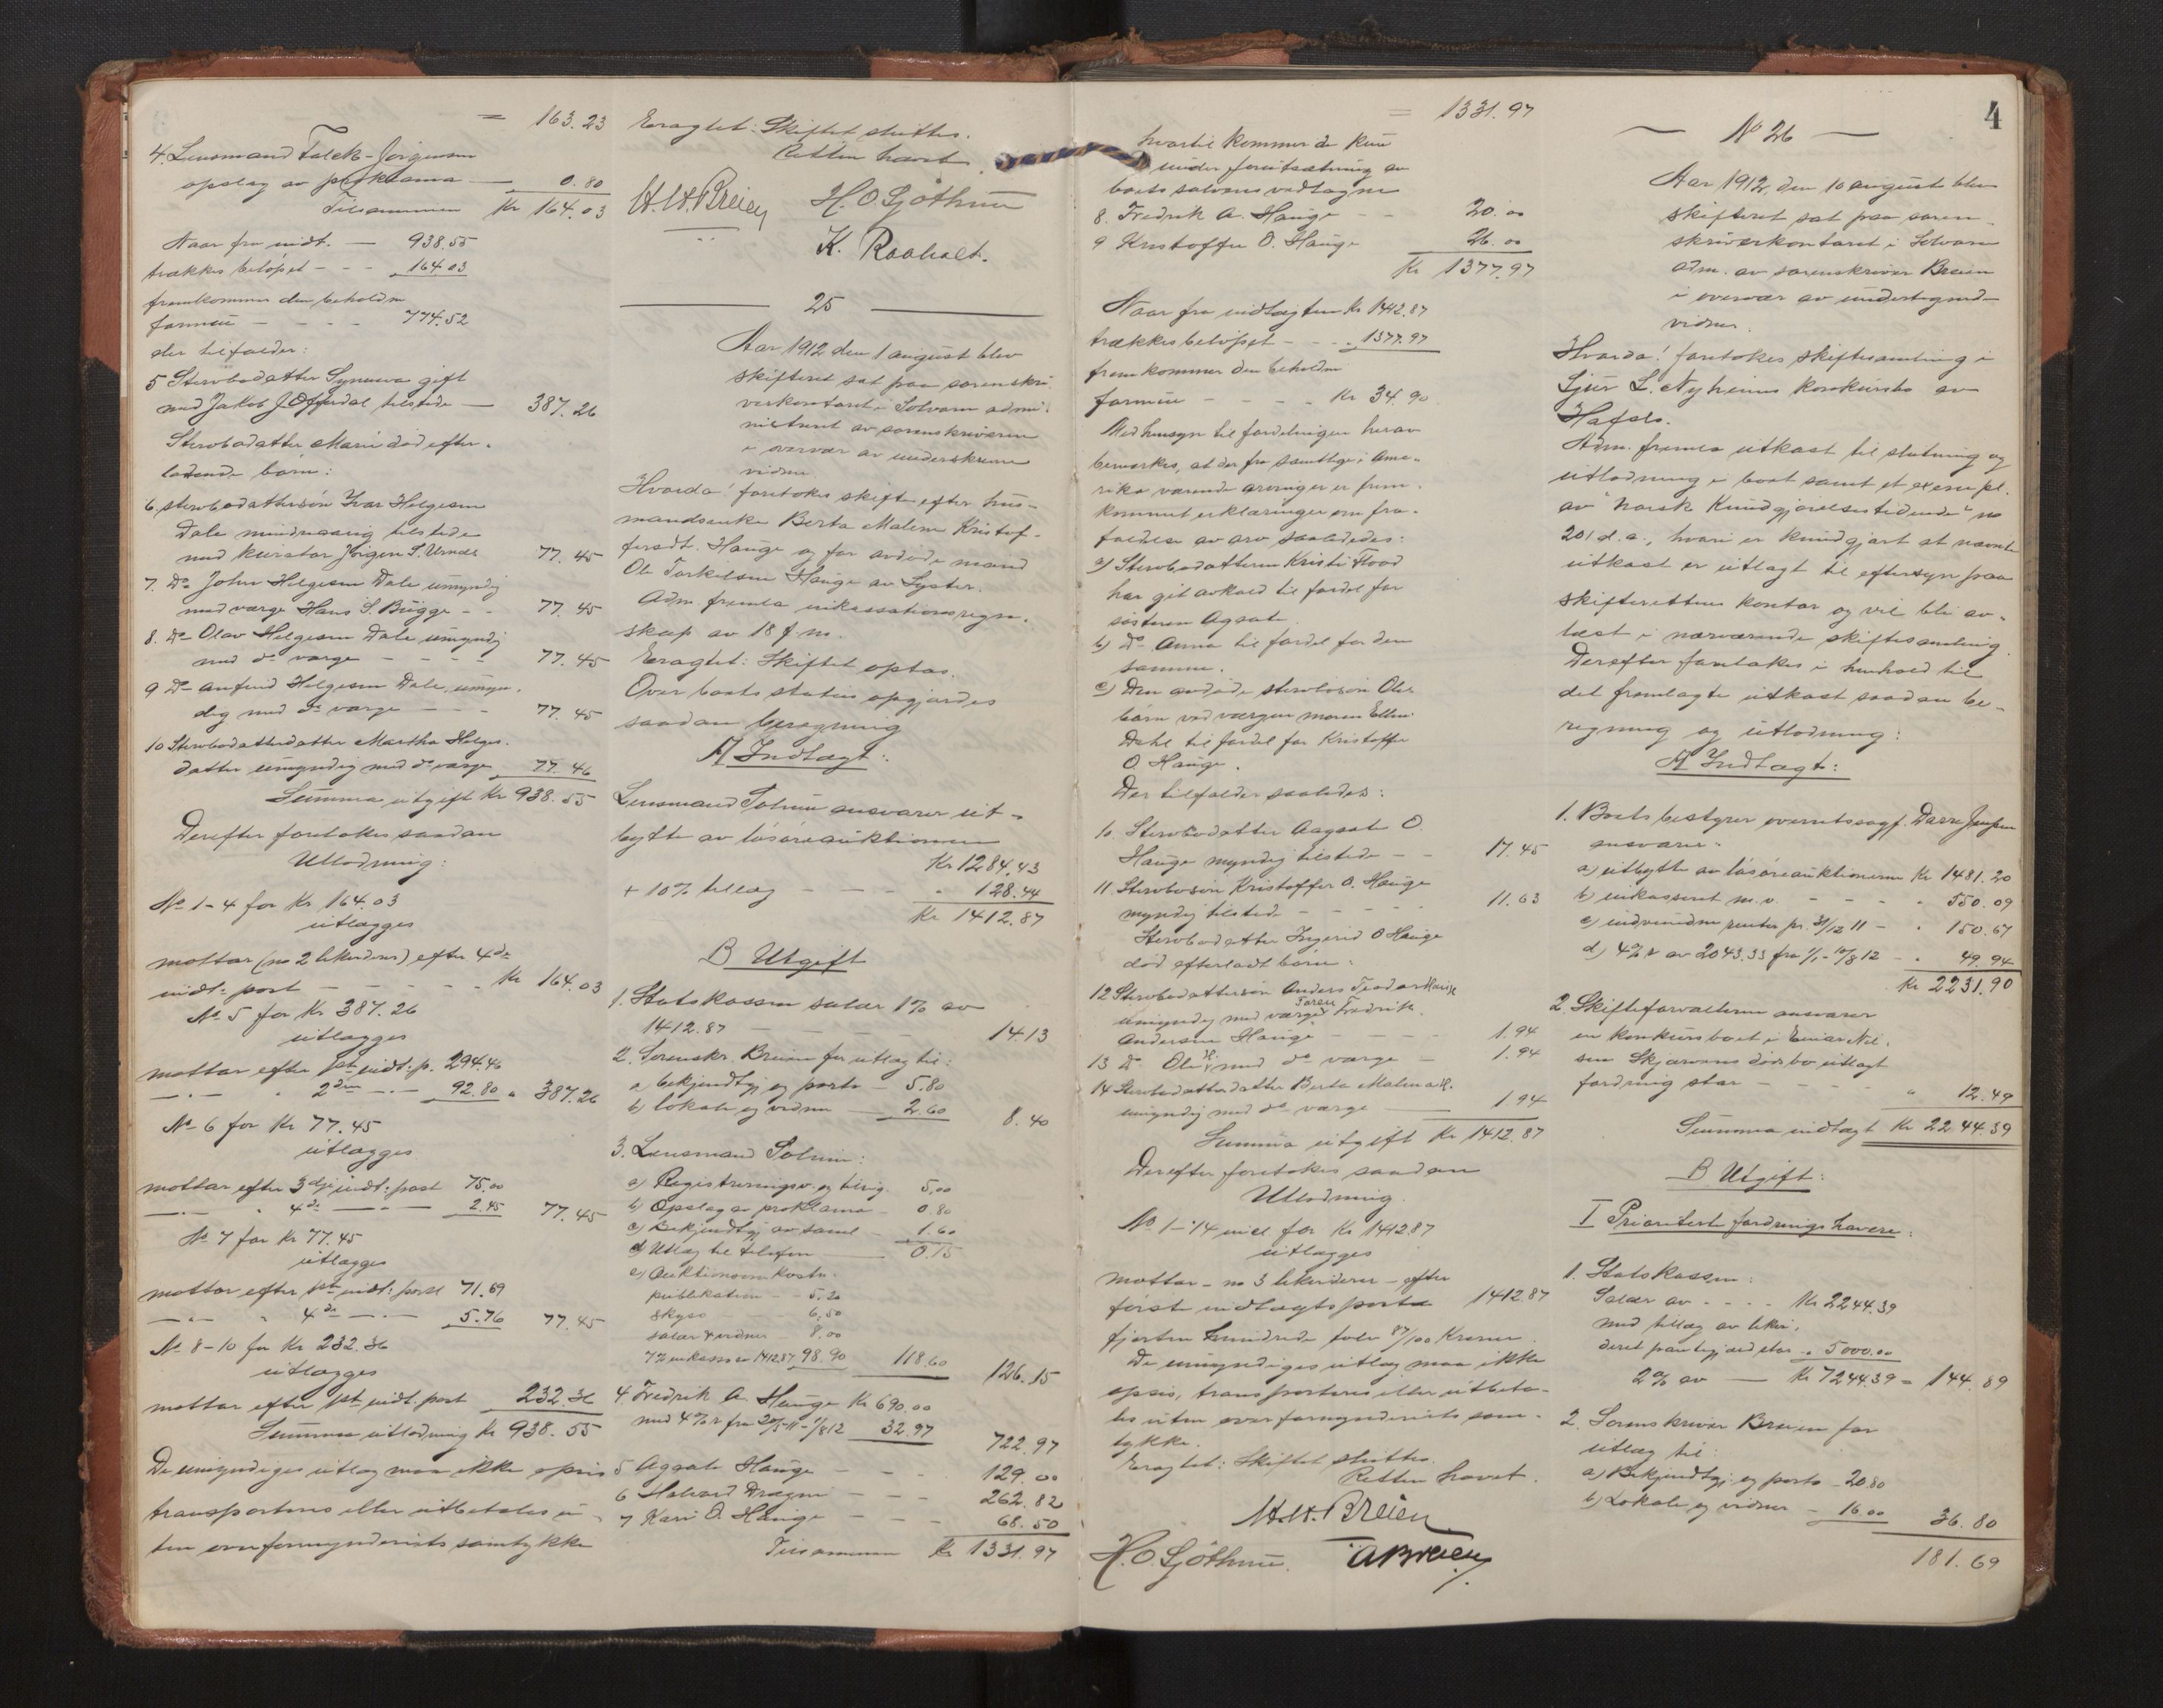 = 163.23
4. Lensmand Falck-Jørgensen
opslag av proklama — " 0.80
Tilsammen Kr 164.03
Naar fra indt. — 938.55
trækkes beløpet - - - 164.03
fremkommer den beholdne
formue - - - - 774.52
der tilfalder:
5 Stervbodatter Synneva gift
med Jakob J Offerdal tilstede — 387.26
Stervbodatter Mari død efter-
ladende børn:
6, stervbodattersøn Ivar Helgesen
Dale mindreaarig tilstede
med kurator Jørgen S. Urnes 77.45
7. Do John Helgesen Dale umyndig
med værge Hans S. Bugge - - 77.45
8. Do Olav Helgesen Dale umyndig
med do værge - - - - 77.45
9 Do Anfind Helgesen Dale, umyn-
dig med do værge - - - 77.45
10 Stervbodatterdatter Martha Helges-
datter umyndig med do værge 77.46
Summa utgift Kr 938.55
Derefter foretokes saadan
Utlodning:
No 1-4 for Kr 164.03
utlægges
mottar (no 2 likvideres) efter 4de
indt: post - - - - - Kr 164.03
No 5 for Kr 387.26
utlægges
mottar efter 1ste indt: p. 294.46
—.— " 2den —.— 92.80 " 387.26
No 6 for Kr 77.45
utlægges
mottar efter 3dje indt: post 75.00
—.— " 4de —.— 2.45 77.45
No 7 for Kr 77.45
utlægges
mottar efter 1ste indt: post 71.69
—.— " 4de —.— 5.76 77.45
No 8-10 for Kr 232.36
utlægges
mottar efter 1ste indt. post 232.36
Summa utlodning Kr 938.55
De umyndiges utlæg maa ikke opsies
transporteres eller utbetales u-
ten overformynderiets samtykke
Eragtet: Skiftet sluttes.
Retten hævet
H.H.Breien H.O.Sjøthun
K. Raaholt.
25
Aar 1912 den 1 august blev
skifteret sat paa sorenskri-
verkontoret i Solvorn admi-
nistreret av sorenskriveren
i overvær av underskrevne
vidner
Hvorda! foretokes skifte efter hus-
mandsenke Berta Malene Kristof-
fersdt. Hauge og før avdøde mand
Ole Torkelsen Hauge av Lyster.
Adm fremla inkassationsregn-
skap av 18 f.m.
Eragtet: Skiftet optas.
Over boets status opgjordes
saadan beregning
A Indtægt:
Lensmand Solvin ansvarer ut-
bytte av løsøreauktionen
Kr 1284.43
+ 10% tillæg - - - - " 128.44
Kr 1412.87
B Utgift
1. Statskassen salær 1% av
1412.87 — — — 14.13
2. Sorenskr. Breien for utlæg til:
a) bekjendtgj og porto — 5.80
b) lokale og vidner — 2.60 8.40
3. Lensmand Solvin:
a) Registreringsv. og tilsig. 5.00
b) Opslag av proklama — 0.80
c) Bekjendtgj av saml — 1.60
d) Utlæg til telefon — 0.15
e) Auktionsomkostn.
publikation — 5.20
skyss — 6.50
salær + vidner — 8.00
7% inkasso av 1412.87 98.90 118.60 126.15
4 Fredrik A. Hauge Kr 690.00
med 4% r fra 20/5-11 - 1/8 12 32.97 722.97
5 Agaate Hauge — — — 129.00
6 Halvard Drægni — — — 262.82
7 Kari O. Hauge — — — 68.50
Tilsammen Kr 1331.97
= 1331.97
hvortil kommer de kun
under forutsætning av
boets solvens vedtagne
8. Fredrik A. Hauge - - 20.00
9 Kristoffer O. Hauge 26.00
Kr 1377.97
Naar fra indtægten Kr 1412.87
trækkes beløpet - - - " 1377.97
fremkommer den beholdne
formue - - - - Kr 34.90
Med hensyn til fordelingen herav
bemerkes, at der fra samtlige i Ame-
rika værende arvinger er frem-
kommet erklæringer om fra-
faldelse av arv saaledes:
a) Stervbodatteren Kristi Flood
har git avkald til fordel for
søsteren Agaate
b) do Anna til fordel for den
samme.
c) Den avdøde stervbosøn Oles
børn ved værgen moren Ellen
Dahl til fordel for Kristoffer
O. Hauge.
Der tilfalder saaledes:
10. Stervbodatter Aagaate O.
Hauge myndig tilstede — — 17.45
11. Stervbosøn Kristoffer O. Hauge
myndig tilstede - - - - 11.63
Stervbodatter Ingerid O Hauge
død efterladt børn:
12 Stervbodattersøn Anders Teodor Hauge
umyndig med værge Faren Fredrik
Andersen Hauge - - - - 1.94
13 Do Ole H. med do værge — 1.94
14 Stervbodatterdatter Berta Malena H.
umyndig med do værge — 1.94
Summa utgift Kr 1412.87
Derefter foretokes saadan
Utlodning.
No 1-14 incl for Kr 1412.87
utlægges
mottar - no 3 likviderer - efter
første indtægtspost 1412.87
fjorten hundrede tolv 87/100 Kroner.
De umyndiges utlæg maa ikke
opsies, transporteres eller utbeta-
les uten overformynderiets sam-
tykke.
Eragtet: Skiftet sluttes.
Retten hævet.
H.H.Breien
H.O.Sjøthun. ABreien
4
No 26
Aar 1912, den 10 august blev
skifteret sat paa soren-
skriverkontoret i Solvorn
adm. av sorenskriver Breien
i overvær av undertegnede
vidner.
Hvorda! foretokes skiftesamling i
Sjur L. Nyheims konkursbo av
Hafslo.
Adm. fremla utkast til slutning og
utlodning i boet samt et exempl.
av "Norsk Kundgjørelsestidende" no
201 d.a., hvori er kundgjort at nævnte
utkast er utlagt til eftersyn paa
skifterettens kontor og vil bli av-
læst i nærværende skiftesamling.
Derefter foretokes i henhold til
det fremlagte utkast saadan be-
regning og utlodning:
A Indtægt:
1. Boets bestyrer overretssagf. Dasse Jensen
ansvarer:
a) utbytte av løsøreauktionerne Kr 1481.20
b) inkasseret m.v. - - - " 550.09
c) indvundne renter pr. 31/12 11 - " 150.67
d) 4% r av 2043.33 fra 1/1 - 10/8 12 - " 49.94
Kr 2231.90
2. Skifteforvalteren ansvarer
en konkursboet i Einar Nil-
sen Skjærvens dødsbo utlagt
fordring stor - - - - " 12.49
Summa indtægt Kr 2244.39
B Utgift:
I Prioriterte fordringshavere:
1. Statskassen:
Salær av - - - - Kr 2244.39
med tillæg av likvi-
deret pantegjæld stor " 5000.00
2% av — Kr 7244.39 = 144.89
2. Sorenskriver Breien for
utlæg til:
a) Bekjendtgj. og porto — 20.80
b) Lokale og vidner — 16.00 36.80
181.69